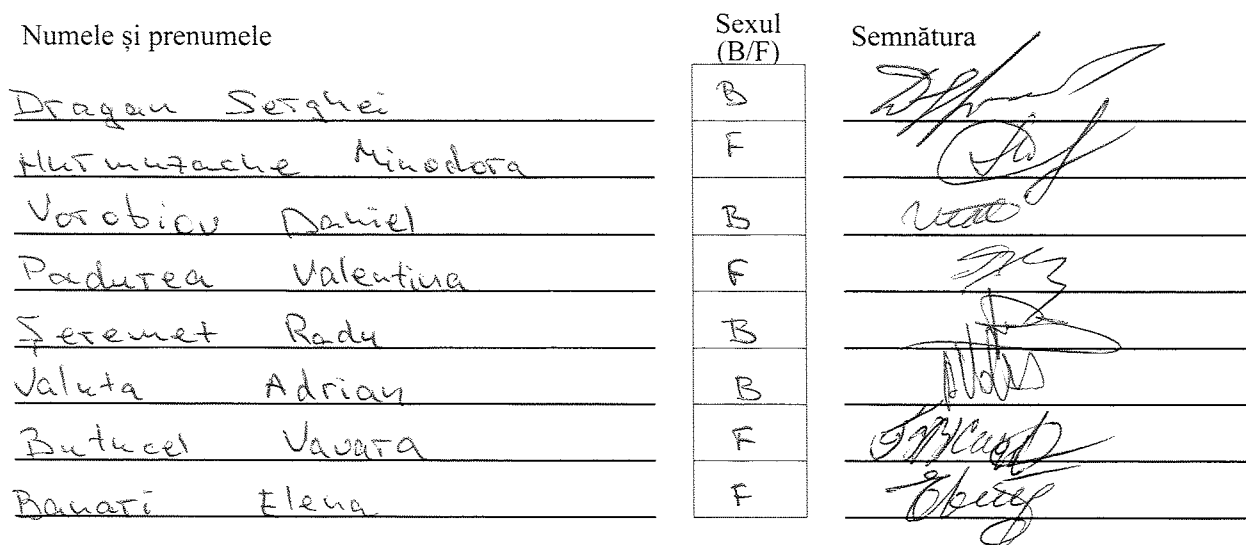 Numele și prenumele Sexul (B/F) Semnătura
Dragan Serghei B
Hurmuzache Minodora F
Vorobiov Daniel B
Padurea Valentina F
Șeremet Radu B
Valuta Adrian B
Butucel Vavara F
Banari Elena F